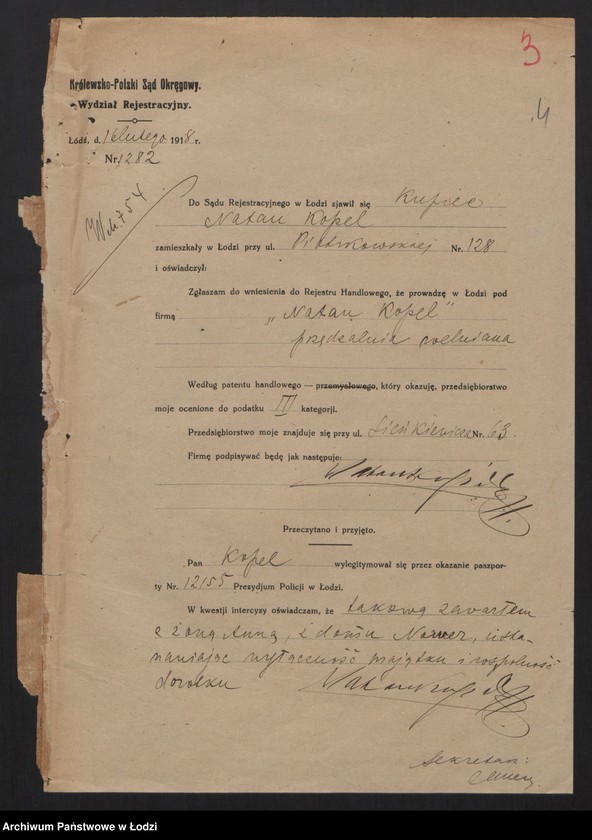 3
4
Królewsko-Polski Sąd Okręgowy.
Wydział Rejestracyjny.
Łódź, d. 16 lutego 1918 r.
Nr. 1282
754
Do Sądu Rejestracyjnego w Łodzi zjawił się Kupiec
Natan Kopel
zamieszkały w Łodzi przy ul. Piotrkowskiej Nr. 128
i oświadczył:
Zgłaszam do wniesienia do Rejestru Handlowego, że prowadzę w Łodzi pod
firmą „Natan Kopel"
przędzalnia wełniana
Według patentu handlowego — przemysłowego, który okazuję, przedsiębiorstwo
moje ocenione do podatku III kategorji.
Przedsiębiorstwo moje znajduje się przy ul. Sienkiewicza Nr. 63.
Firmę podpisywać będę jak następuje:
Natan Kopel
Przeczytano i przyjęto.
Pan Kopel wylegitymował się przez okazanie paszpor-
ty Nr. 12155 Prezydjum Policji w Łodzi.
W kwestji intercyzy oświadczam, że takową zawarłem
z żoną Anną, z domu Nower, usta-
nawiając wyłączność majątku i wspólność
dorobku Natan Kopel
Sekretarz:
Archiwum Państwowe w Łodzi